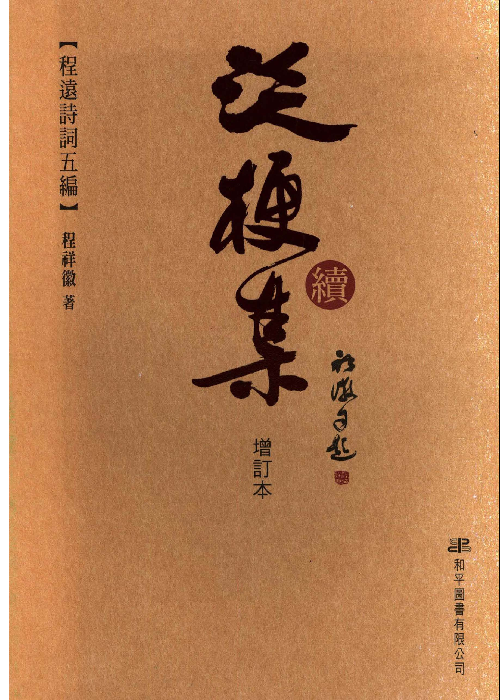 泛梗集
續
祥徽自題
增訂本
【程遠詩詞五編】
程祥徽 著
和平圖書有限公司